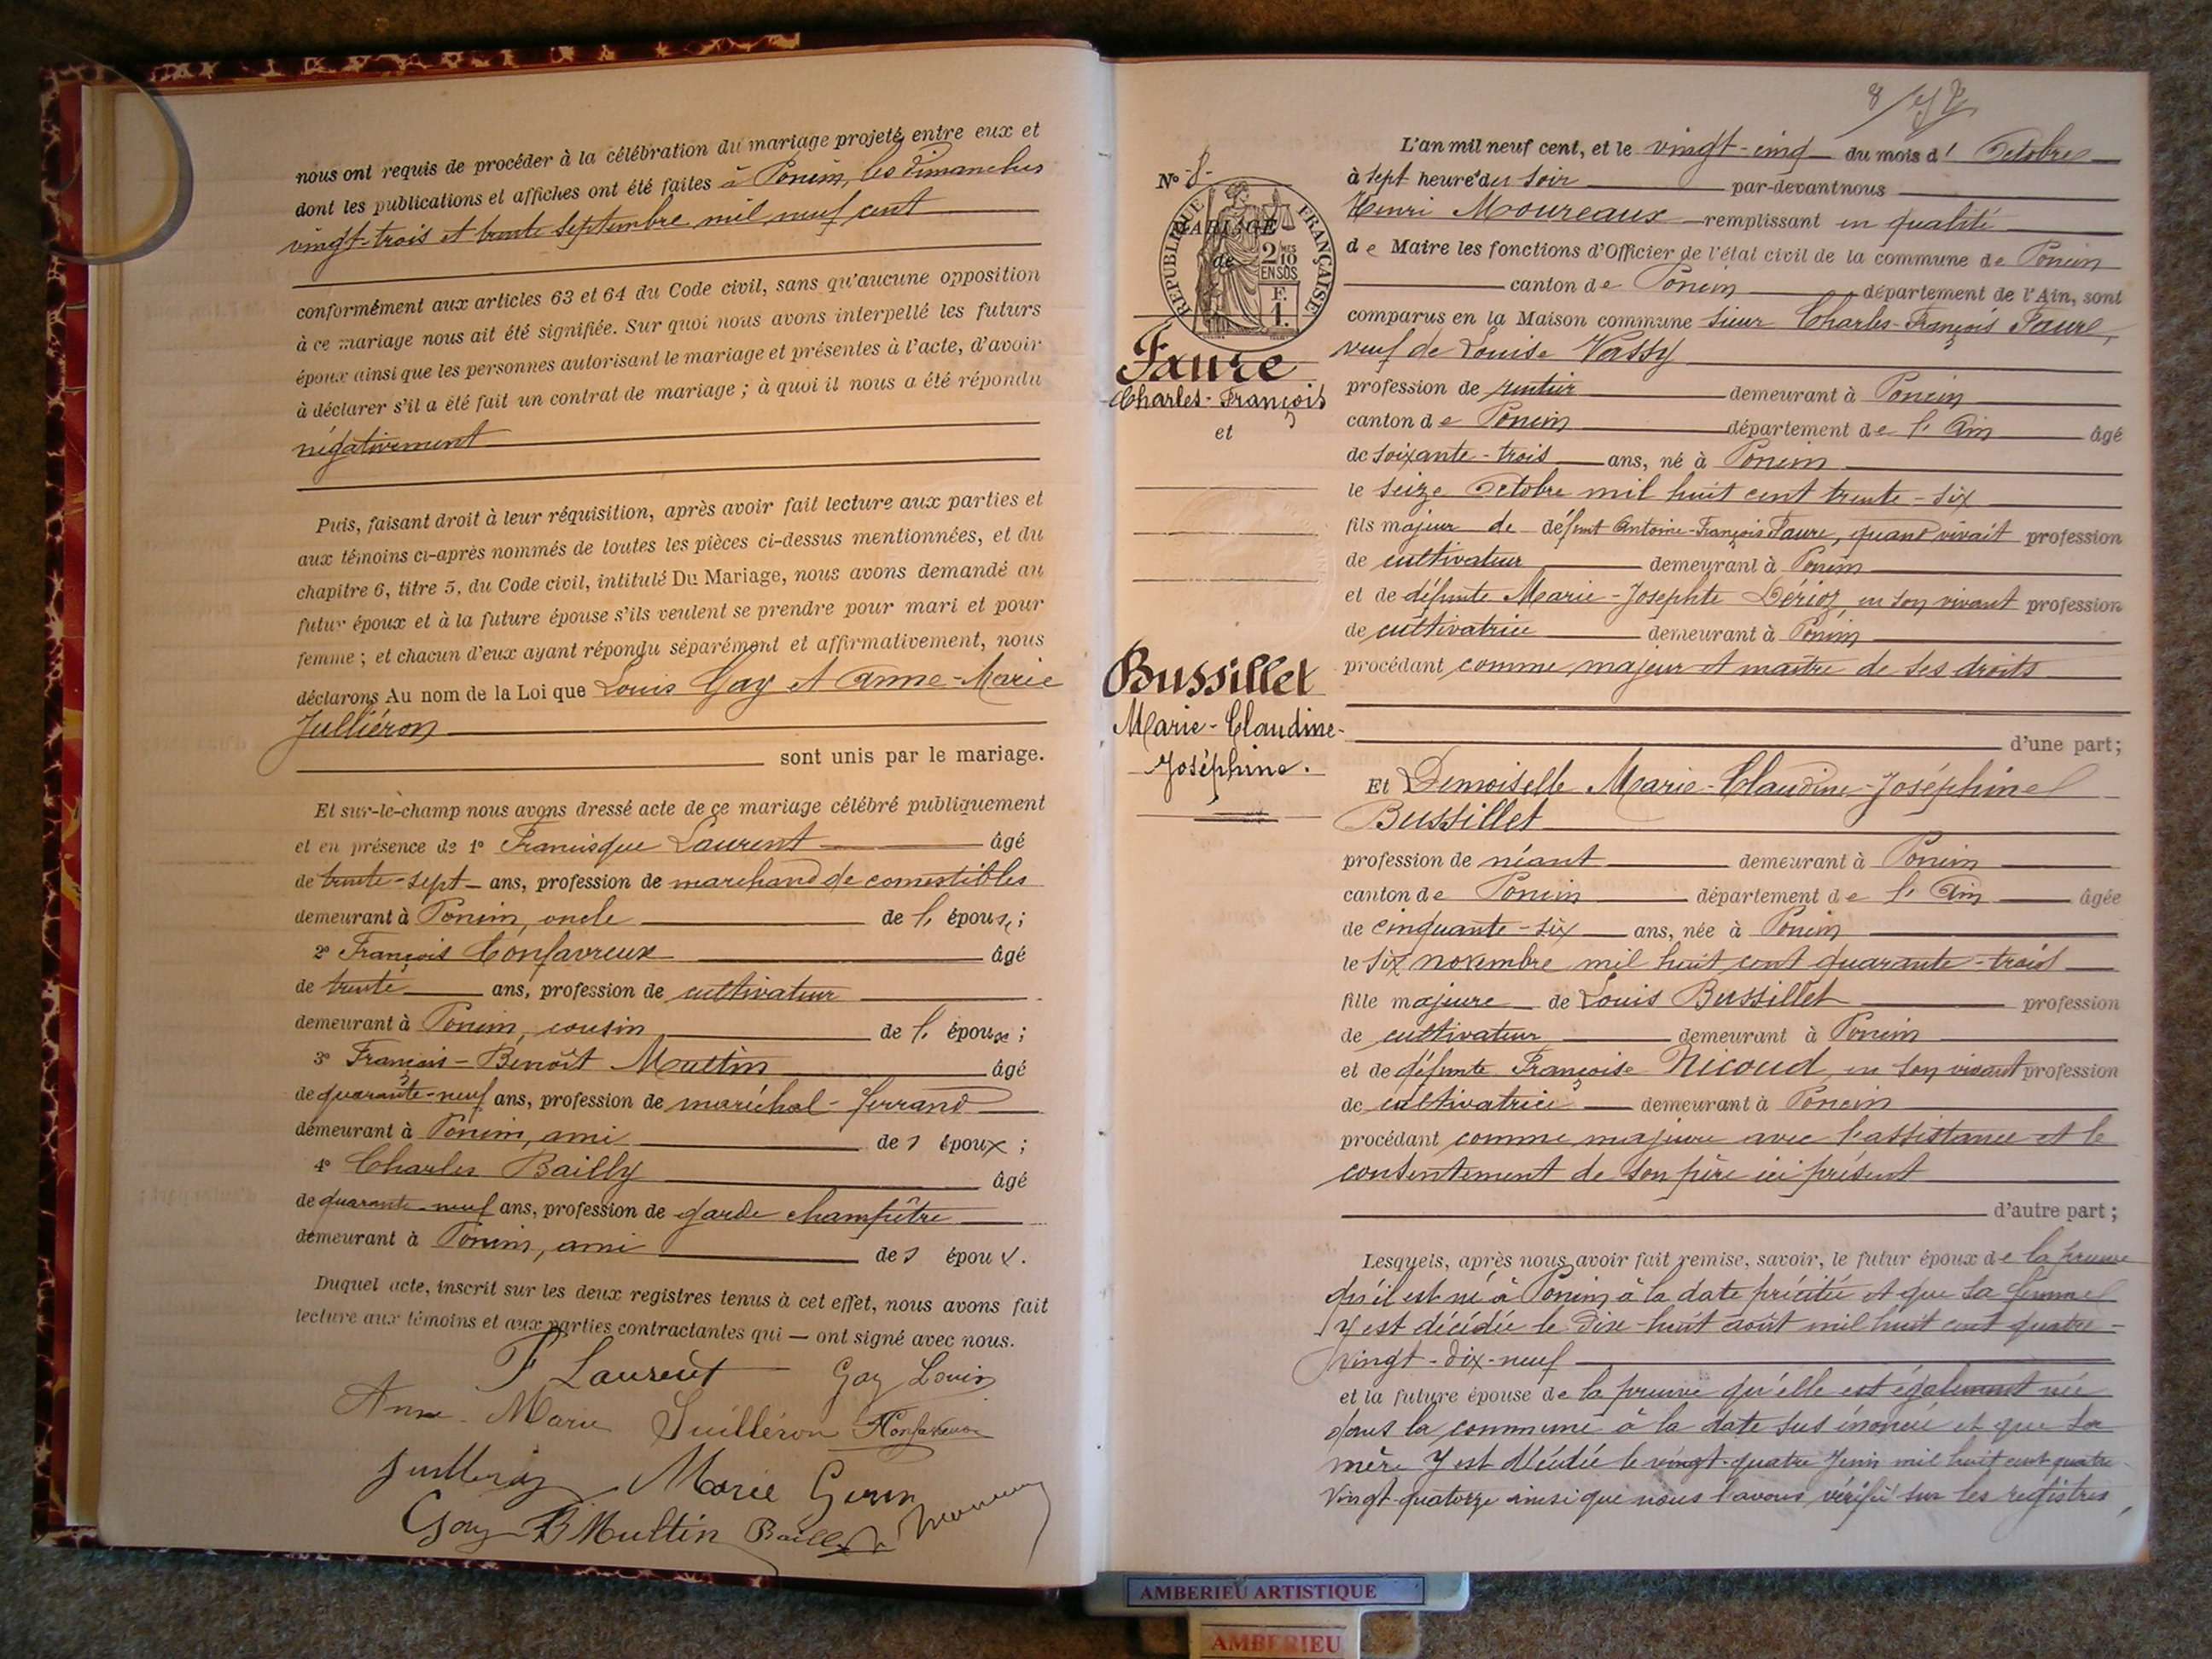 nous ont requis de procéder à la célébration du mariage projeté entre eux et
dont les publications et affiches ont été faites à Poncin, les dimanches
vingt-trois et trente septembre mil neuf cent
conformément aux articles 63 et 64 du Code civil, sans qu'aucune opposition
à ce mariage nous ait été signifiée. Sur quoi nous avons interpellé les futurs
époux ainsi que les personnes autorisant le mariage et présentes à l'acte, d'avoir
à déclarer s'il a été fait un contrat de mariage ; à quoi il nous a été répondu
négativement
Puis, faisant droit à leur réquisition, après avoir fait lecture aux parties et
aux témoins ci-après nommés de toutes les pièces ci-dessus mentionnées, et du
chapitre 6, titre 5, du Code civil, intitulé Du Mariage, nous avons demandé au
futur époux et à la future épouse s'ils veulent se prendre pour mari et pour
femme ; et chacun d'eux ayant répondu séparément et affirmativement, nous
déclarons Au nom de la Loi que Louis Gay et Anne-Marie
Julliéron
sont unis par le mariage.
Et sur-le-champ nous avons dressé acte de ce mariage célébré publiquement
et en présence de 1° Francisque Laurent âgé
de trente-sept ans, profession de marchand de comestibles
demeurant à Poncin, oncle de l' épouse ;
2° François Confavreux âgé
de trente ans, profession de cultivateur
demeurant à Poncin, cousin de l' épouse ;
3° François-Benoît Multin âgé
de quarante-neuf ans, profession de maréchal-ferrand
demeurant à Poncin, ami des époux ;
4° Charles Bailly âgé
de quarante-neuf ans, profession de garde champêtre
demeurant à Poncin, ami des époux.
Duquel acte, inscrit sur les deux registres tenus à cet effet, nous avons fait
lecture aux témoins et aux parties contractantes qui — ont signé avec nous.
F Laurent Gay Louis
Anne Marie Juilléron F Confavreux
Marie Gerin
Gay B Multin Bailly
8
L'an mil neuf cent, et le vingt-cinq du mois d' Octobre
à sept heures du soir par-devant nous
Henri Moureaux remplissant en qualité
de Maire les fonctions d'Officier de l'état civil de la commune de Poncin
canton de Poncin département de l'Ain, sont
comparus en la Maison commune sieur Charles-François Faure,
veuf de Louise Vassy
profession de rentier demeurant à Poncin
canton de Poncin département de l'Ain âgé
de soixante-trois ans, né à Poncin
le seize Octobre mil huit cent trente-six
fils majeur de défunt Antoine-François Faure, quand vivait profession
de cultivateur demeurant à Poncin
et de défunte Marie-Josephte Dérioz, en son vivant profession
de cultivatrice demeurant à Poncin
procédant comme majeur et maître de ses droits
d'une part;
Et Demoiselle Marie-Claudine-Joséphine
Bussillet
profession de néant demeurant à Poncin
canton de Poncin département de l'Ain âgée
de cinquante-six ans, née à Poncin
le six novembre mil huit cent quarante-trois
fille majeure de Louis Bussillet profession
de cultivateur demeurant à Poncin
et de défunte Françoise Nicoud, en son vivant profession
de cultivatrice demeurant à Poncin
procédant comme majeure avec l'assistance et le
consentement de son père ici présent
d'autre part ;
Lesquels, après nous avoir fait remise, savoir, le futur époux de la preuve
qu'il est né à Poncin à la date précitée et que sa femme
y est décédée le dix-huit août mil huit cent quatre-
vingt-dix-neuf
et la future épouse de la preuve qu'elle est également née
dans la commune à la date sus énoncée et que sa
mère y est décédée le vingt-quatre Juin mil huit cent quatre
vingt-quatorze ainsi que nous l'avons vérifié sur les registres,
N° 8
MARIAGE
de
RÉPUBLIQUE FRANÇAISE
2 MES 10
EN SUS
F.
1.
Faure
Charles-François
et
Bussillet
Marie-Claudine-
Joséphine.
AMBERIEU ARTISTIQUE
AMBERIEU